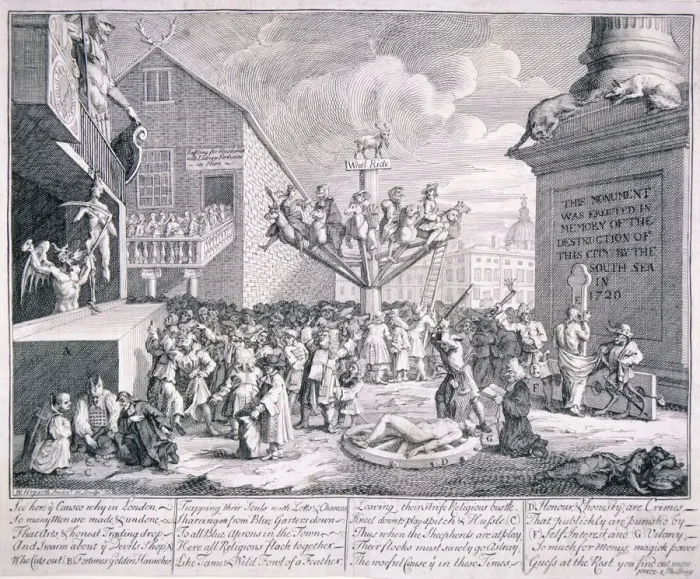 Raffleing for Husbands
with Lottery Fortunes
in Here
Who'l Ride
THIS MONUMENT
WAS ERECTED IN
MEMORY OF THE
DESTRUCTION OF
THIS CITY BY THE
SOUTH SEA
IN
1720
A
C
D
F
G
W Hogarth Invt et Sculp
See here ye Causes why in London,
So many Men are made, & undone,
That Arts, & honest Trading drop,
And Swarm about ye Devils Shop, A
Who Cuts out B Fortunes Golden Haunches
Trapping their Souls with Lotts & Chances
Shareing em from Blue Garters down
To all Blue Aprons in the Town.
Here all Religions flock together,
Like Tame & Wild Fowl of a Feather
Leaving their strife Religious bustle,
Kneel down to play at pitch & Hussle; C
Thus when the Shepherds are at play
Their flocks must surely go Astray;
The woeful Cause yt in these Times
D Honour, & honesty, are Crimes
That publickly are punish'd by
F Self Interest, and G Vilany;
So much for monys magick power
Guess at the Rest you find out more
price 1 Shilling